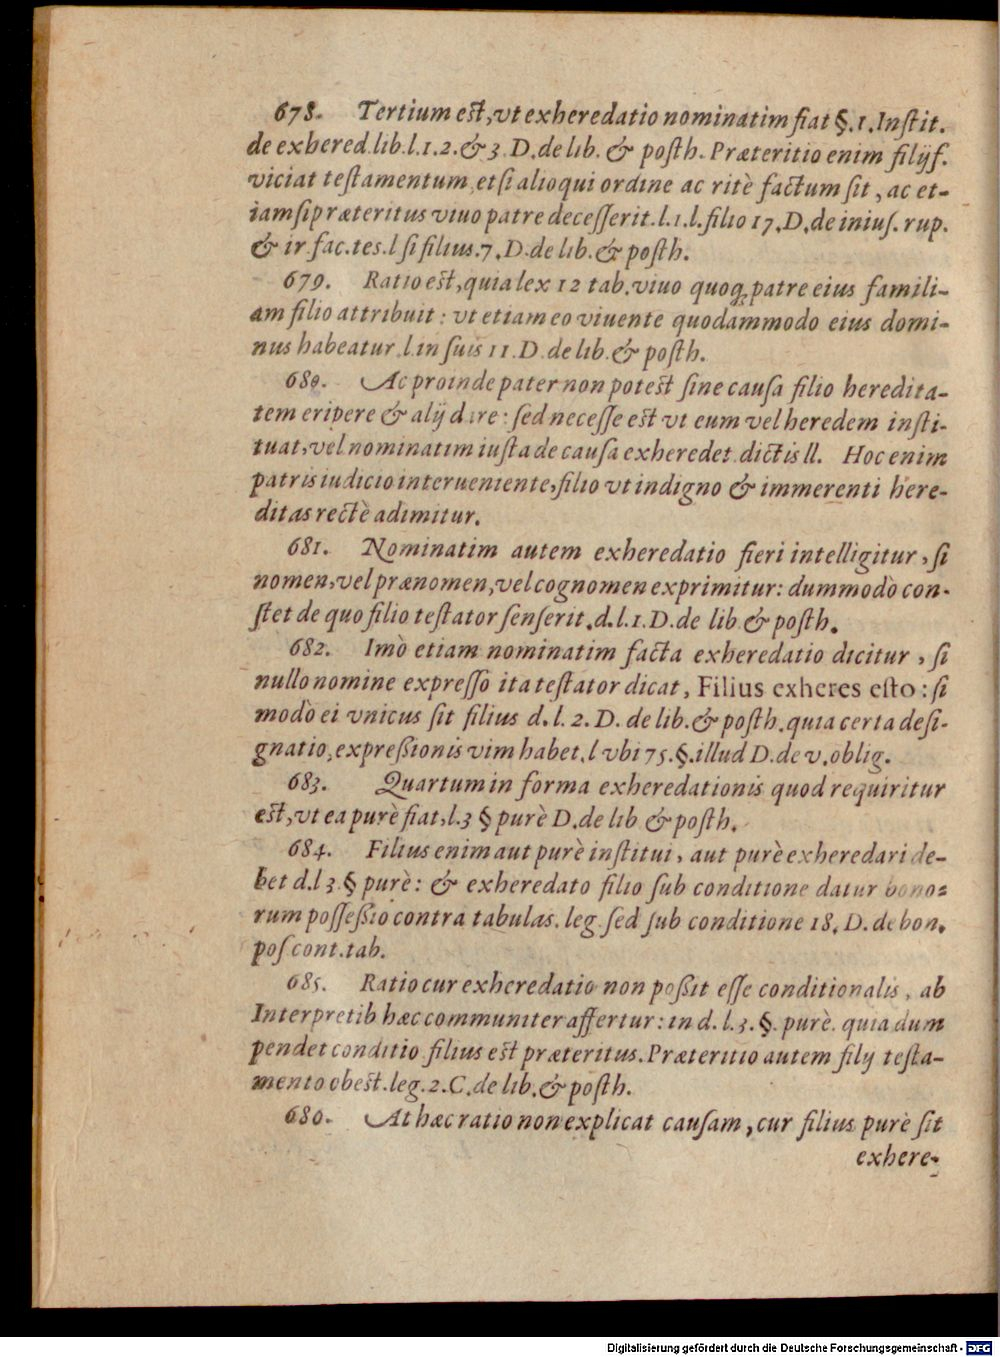 678. Tertium est, vt exheredatio nominatim fiat §. 1. Instit.
de exhered. lib. l. 1. 2. & 3 D. de lib. & posth. Præteritio enim filij f.
viciat testamentum, et si alioqui ordine ac ritè factum sit, ac et-
iamsi præteritus viuo patre decesserit. l. 1. l. filio 17. D. de inius. rup.
& ir fac. tes. l si filius. 7. D. de lib. & posth.
679. Ratio est, quia lex 12 tab. viuo quoq; patre eius famili-
am filio attribuit: vt etiam eo viuente quodammodo eius domi-
nus habeatur l. in suis 11. D. de lib. & posth.
680. Ac proinde pater non potest sine causa filio heredita-
tem eripere & alij dare: sed necesse est vt eum vel heredem insti-
tuat, vel nominatim iusta de causa exheredet. dictis ll. Hoc enim
patris iudicio interueniente, filio vt indigno & immerenti here-
ditas rectè adimitur.
681. Nominatim autem exheredatio fieri intelligitur, si
nomen, vel prænomen, vel cognomen exprimitur: dummodò con-
stet de quo filio testator senserit. d. l. 1. D. de lib. & posth.
682. Imò etiam nominatim facta exheredatio dicitur, si
nullo nomine expresso ita testator dicat, Filius exheres esto: si
modò ei vnicus sit filius d. l. 2. D. de lib. & posth. quia certa desi-
gnatio, expreßionis vim habet. l vbi 75. §. illud D. de v. oblig.
683. Quartum in forma exheredationis quod requiritur
est, vt ea purè fiat, l. 3 § purè D. de lib & posth.
684. Filius enim aut purè institui, aut purè exheredari de-
bet d. l 3. § purè: & exheredato filio sub conditione datur bono-
rum posseßio contra tabulas. leg. sed sub conditione 18. D. de bon.
pos cont. tab.
685. Ratio cur exheredatio non poßit esse conditionalis, ab
Interpretib hæc communiter affertur: in d. l. 3. §. purè. quia dum
pendet conditio filius est præteritus. Præteritio autem filij testa-
mento obest. leg. 2. C. de lib. & posth.
680. At hæc ratio non explicat causam, cur filius purè sit
exhere-
Digitalisierung gefördert durch die Deutsche Forschungsgemeinschaft - DFG